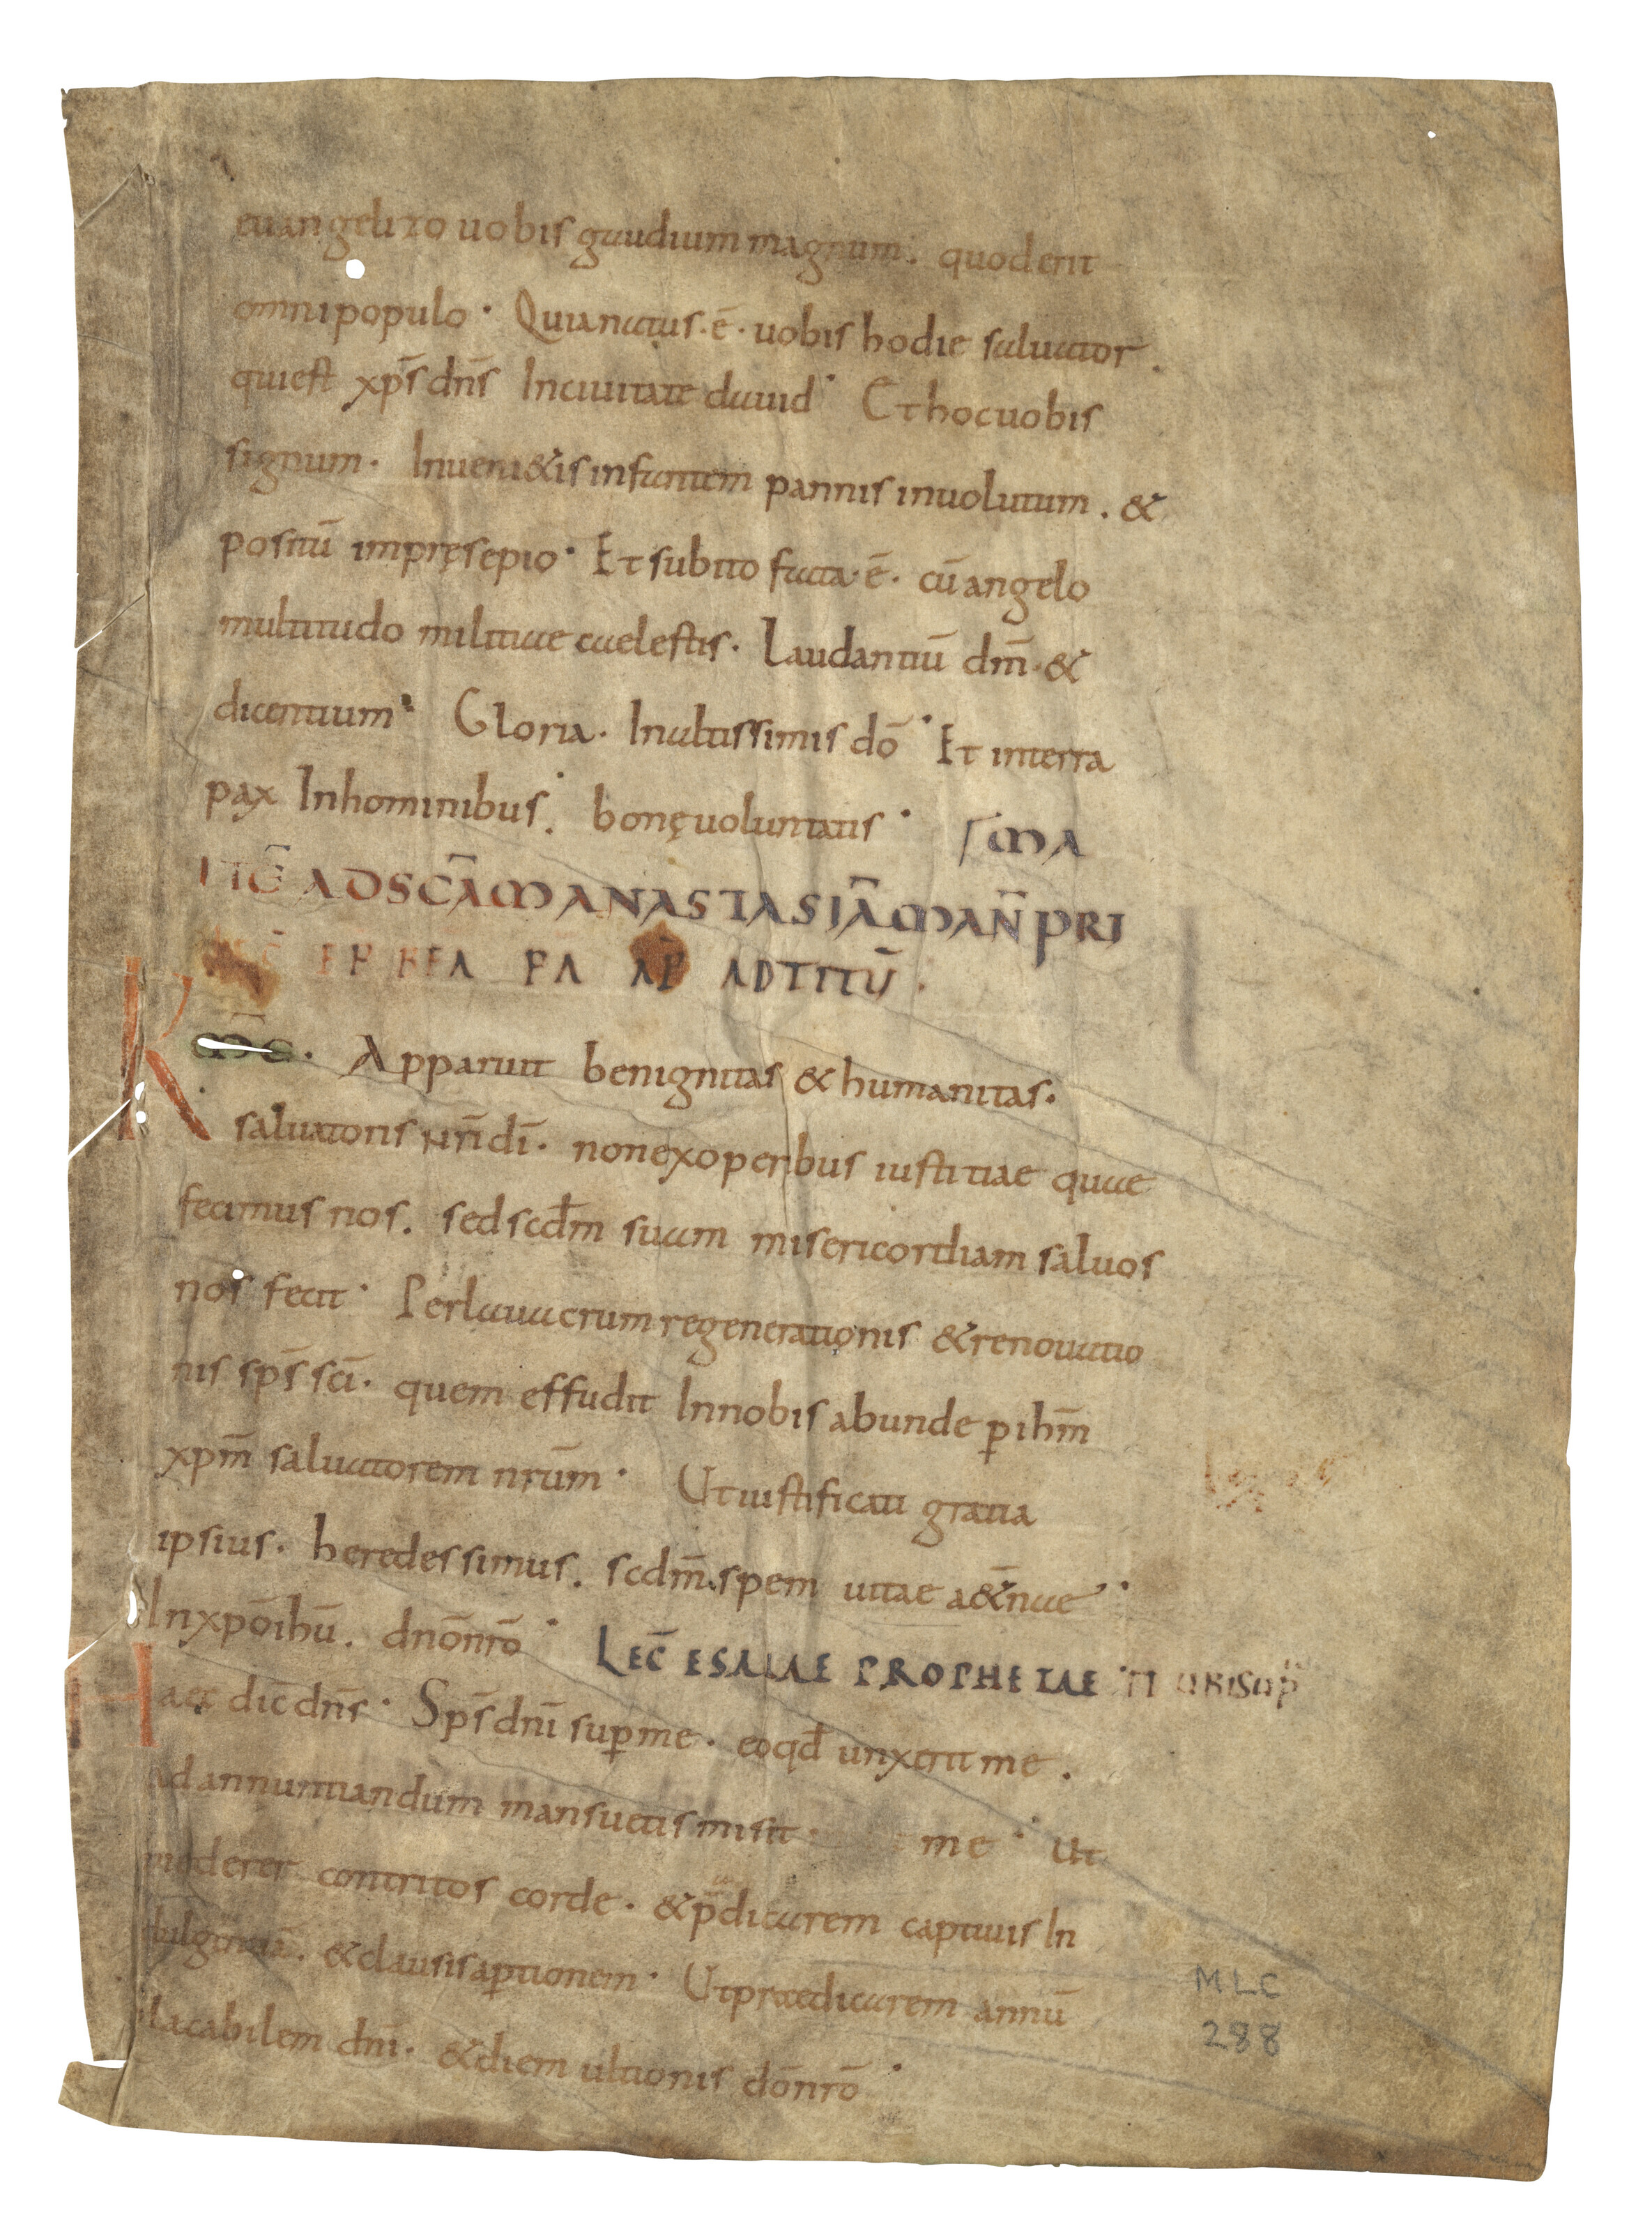 euangelizo uobis gaudium magnum. quod erit
omni populo. Quia natus. ē. uobis hodie saluator.
qui est xp̄s dn̄s In ciuitate dauid. Et hoc uobis
signum. Inueni&is infantem pannis inuolutum. &
positū in pręsepio. Et subito facta. ē. cū angelo
multitudo militiae caelestis. Laudantiū dm̄. &
dicentium. Gloria. In altissimis dō. Et in terra
pax In hominibus. bonę uoluntatis.
ITE᷒ AD SCĀM ANASTASIĀ MAN̄ PRI
EP BEA PA AP̄ AD TITŪ.
Km̄e. Apparuit benignitas & humanitas.
saluatoris nr̄i dī. non ex operibus iustitiae quae
fecimus nos. sed scdm̄ suam misericordiam saluos
nos fecit. Per lauacrum regenerationis & renouatio
nis sp̄s sc̄i. quem effudit In nobis abunde p ihm̄
xpm̄ saluatorem nrūm. Ut iustificati gratia
ipsius. heredes simus. scdm̄ spem uitae a&n̄ae.
In xpō ihū. dnō nrō. LEC̄ ESAIAE PROPHETAE
Haec dic̄ dn̄s. Sp̄s dnī sup me. eo qd̄ unxerit me.
Ad annuntiandum mansuetis misit. me. Ut
mederer contritos corde. & p̄dicarem captiuis In
dulgentiā. & clausis aptionem. Ut praedicarem annū
placabilem dnī. & diem ultionis dō nrō.
MLC
288